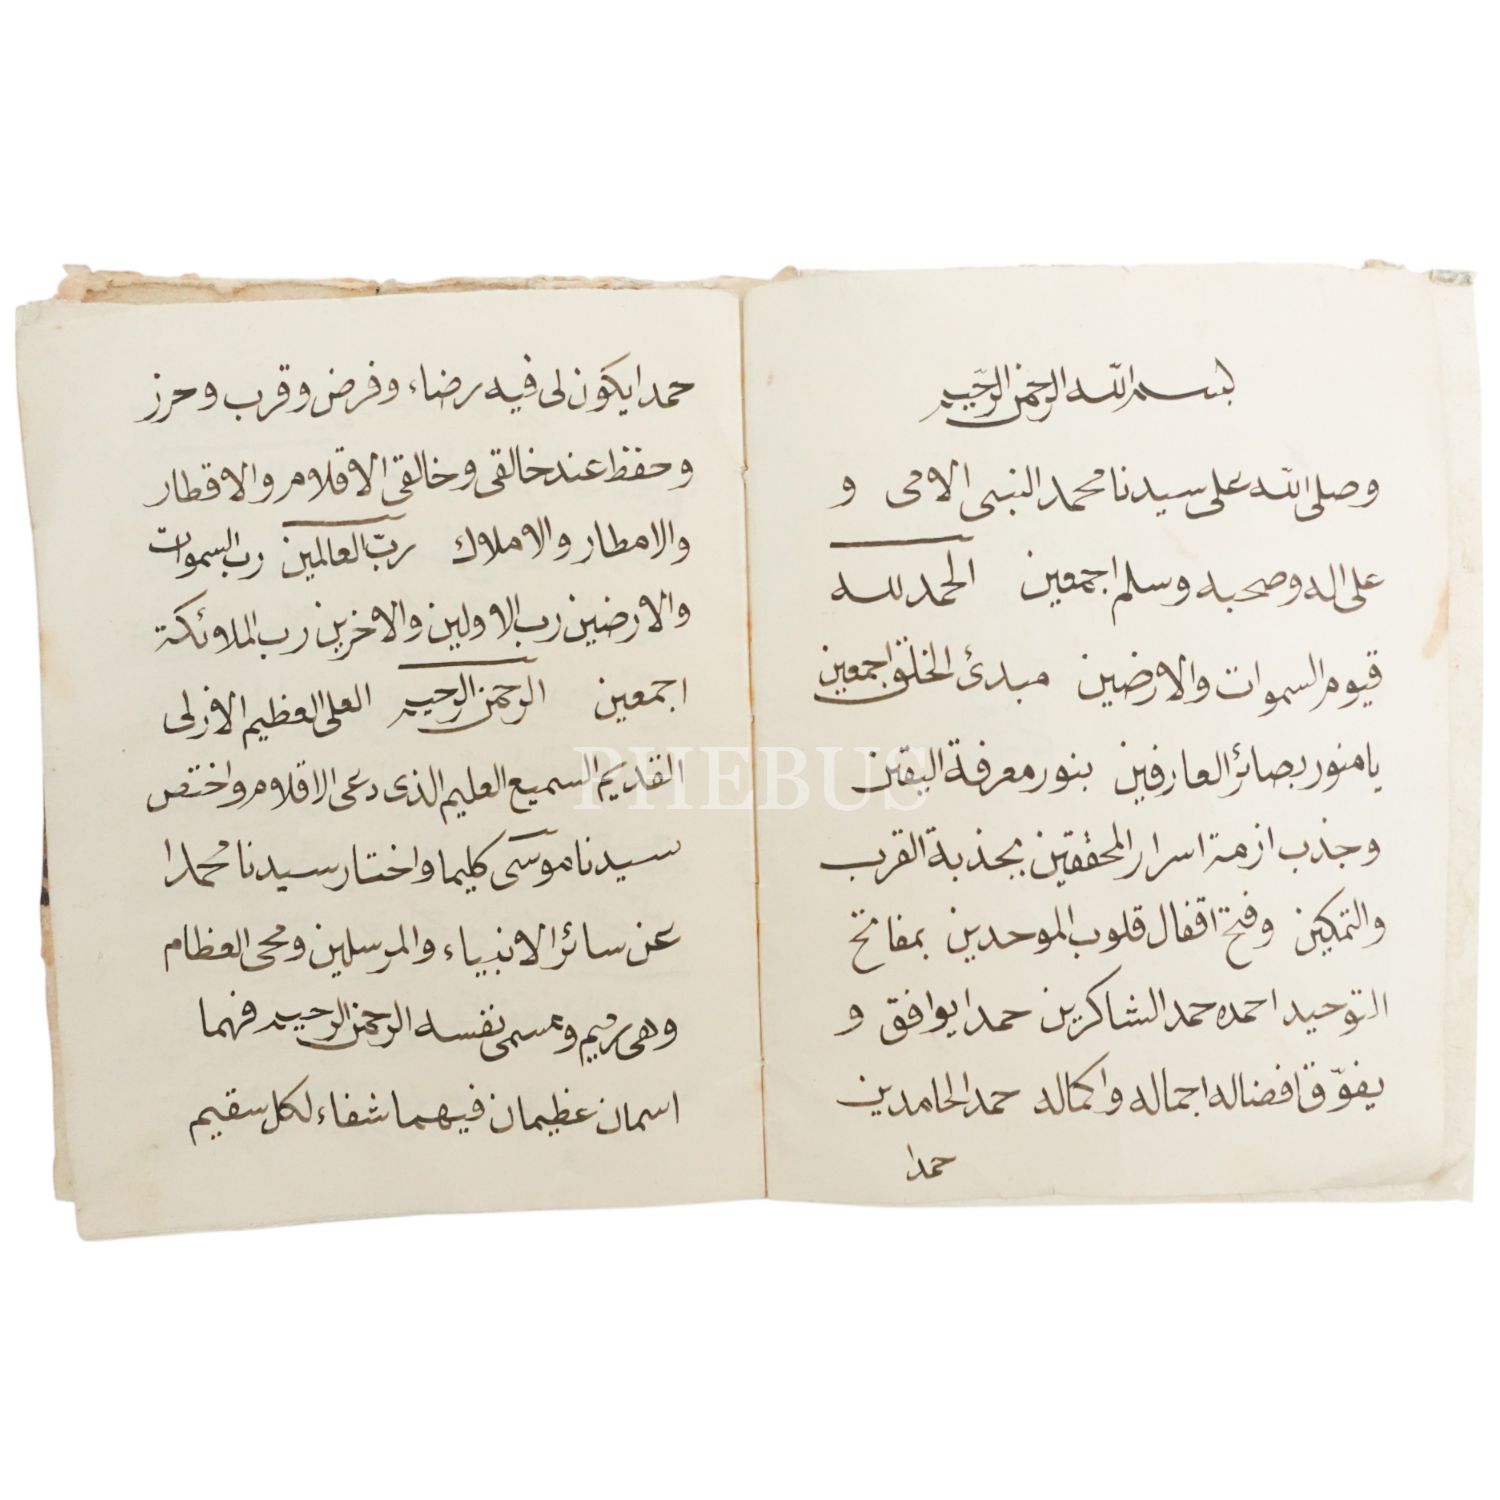 بسم الله الرحمن الرحيم
وصلى الله على سيدنا محمد النبى الامى و
على اله وصحبه وسلم اجمعين الحمد لله
قيوم السموات والارضين مبدئ الخلق اجمعين
يا منور بصائر العارفين بنور معرفة اليقين
وجذب ازمة اسرار المحققين بجذبة القرب
والتمكين وفتح اقفال قلوب الموحدين بمفاتح
التوحيد احمده حمد الشاكرين حمدا يوافق و
يفوّق افضاله اجماله واكماله حمد الحامدين
حمدا
حمدا يكون لى فيه رضاء وفرض وقرب وحرز
وحفظ عند خالقى وخالقى الاقلام والاقطار
والامطار والاملاك ربّ العالمين رب السموات
والارضين رب الاولين والاخرين رب الملائكة
اجمعين الرحمن الرحيم العلى العظيم الازلى
القديم السميع العليم الذى دعى الاقلام واختص
سيدنا موسى كليما واختار سيدنا محمدا
عن سائر الانبياء والمرسلين ومحى العظام
وهى رميم ومسمى نفسه الرحمن الرحيم فهما
اسمان عظيمان فيهما شفاء لكل سقيم
PHEBUS